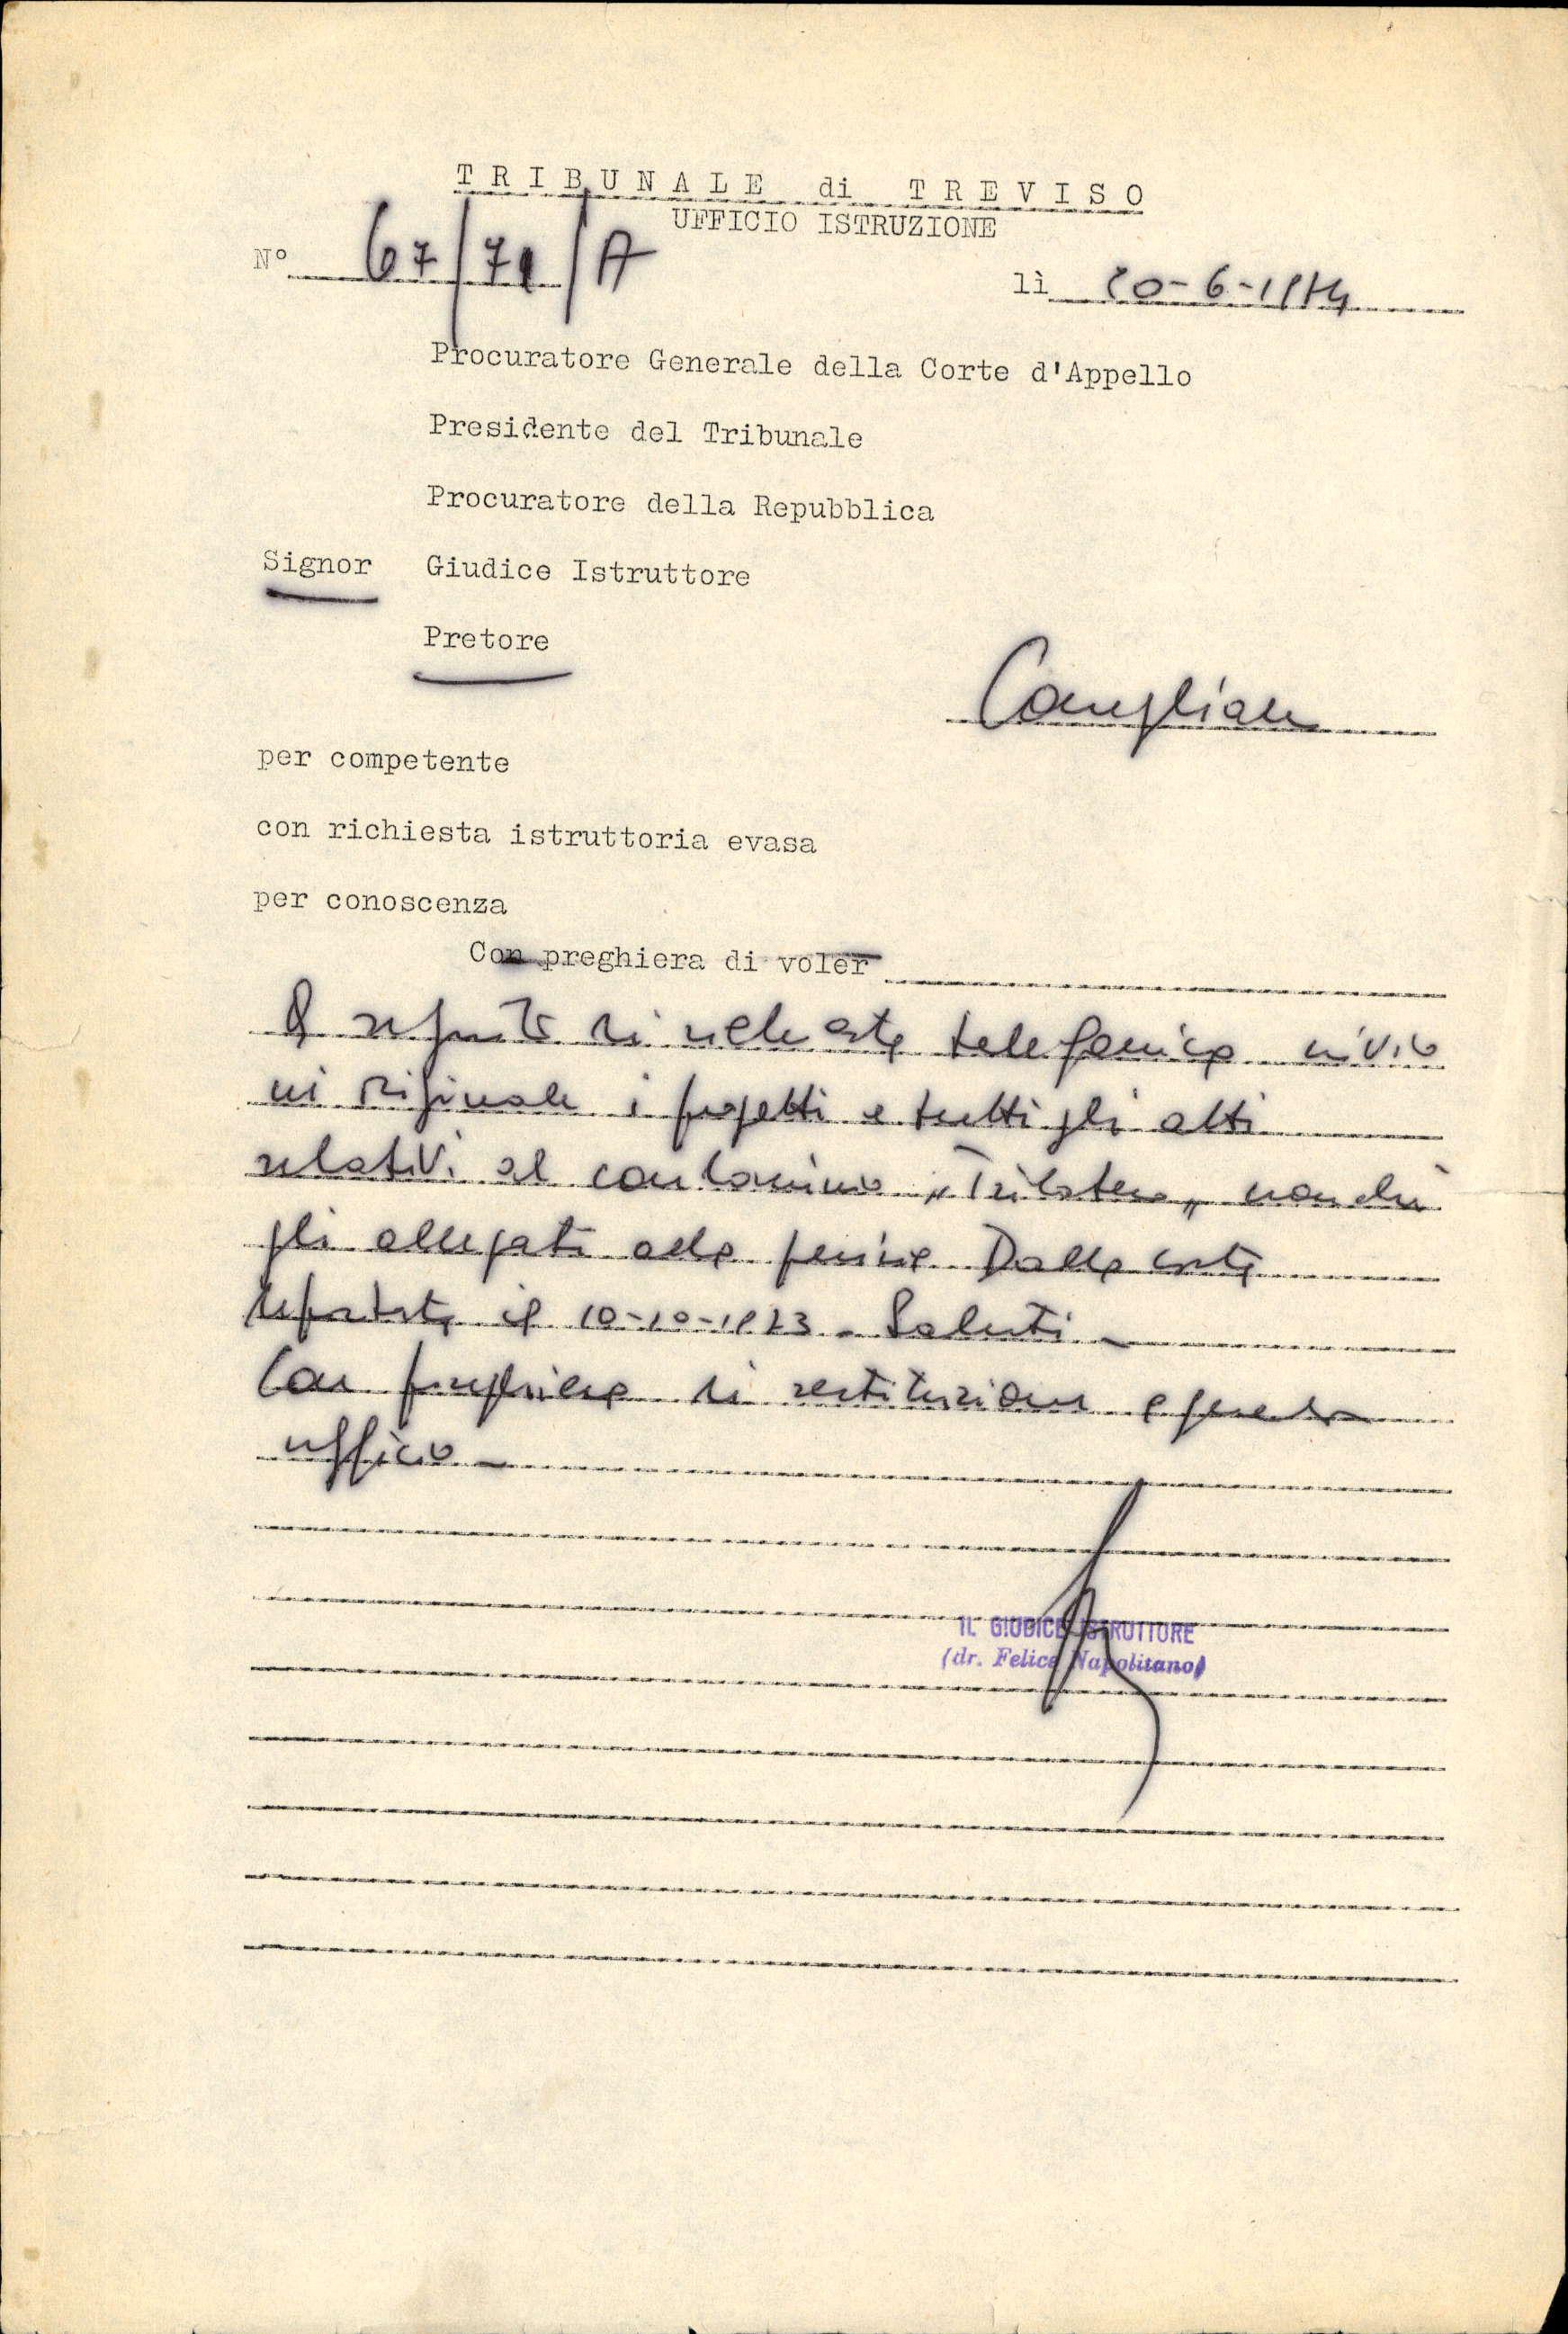 TRIBUNALE di TREVISO
UFFICIO ISTRUZIONE
N° 67/71/A
lì 20-6-1974
Procuratore Generale della Corte d'Appello
Presidente del Tribunale
Procuratore della Repubblica
Signor Giudice Istruttore
Pretore
Conegliano
per competente
con richiesta istruttoria evasa
per conoscenza
Con preghiera di voler
A seguito di richiesta telefonica invio
in originale i progetti e tutti gli atti
relativi al condominio "Trilatero" nonché
gli allegati alla perizia Dalla Costa
depositata il 10-10-1973 - Saluti -
Con preghiera di restituzione a questo
ufficio -
IL GIUDICE ISTRUTTORE
(dr. Felice Napolitano)